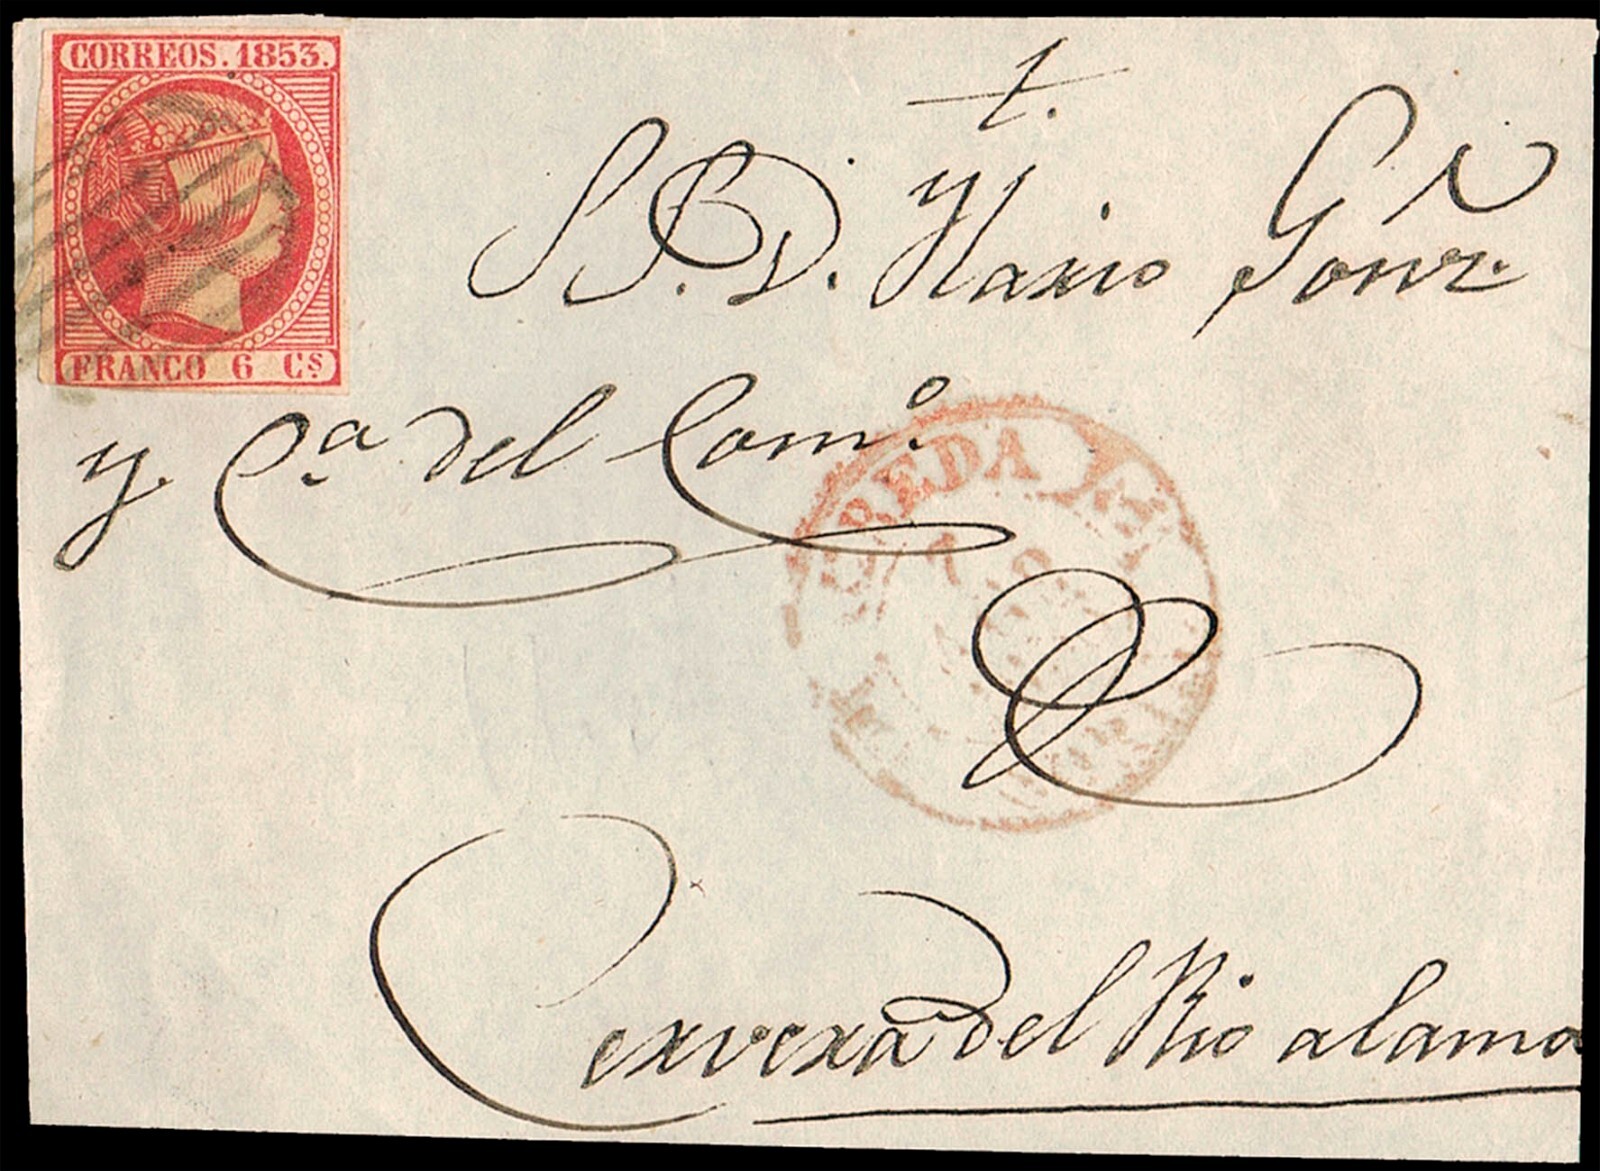 CORREOS. 1853.
FRANCO 6 Cs
t.
S. D. Maxio Gonz.
y Ca del Como.
REDA
Cervera del Rio alama